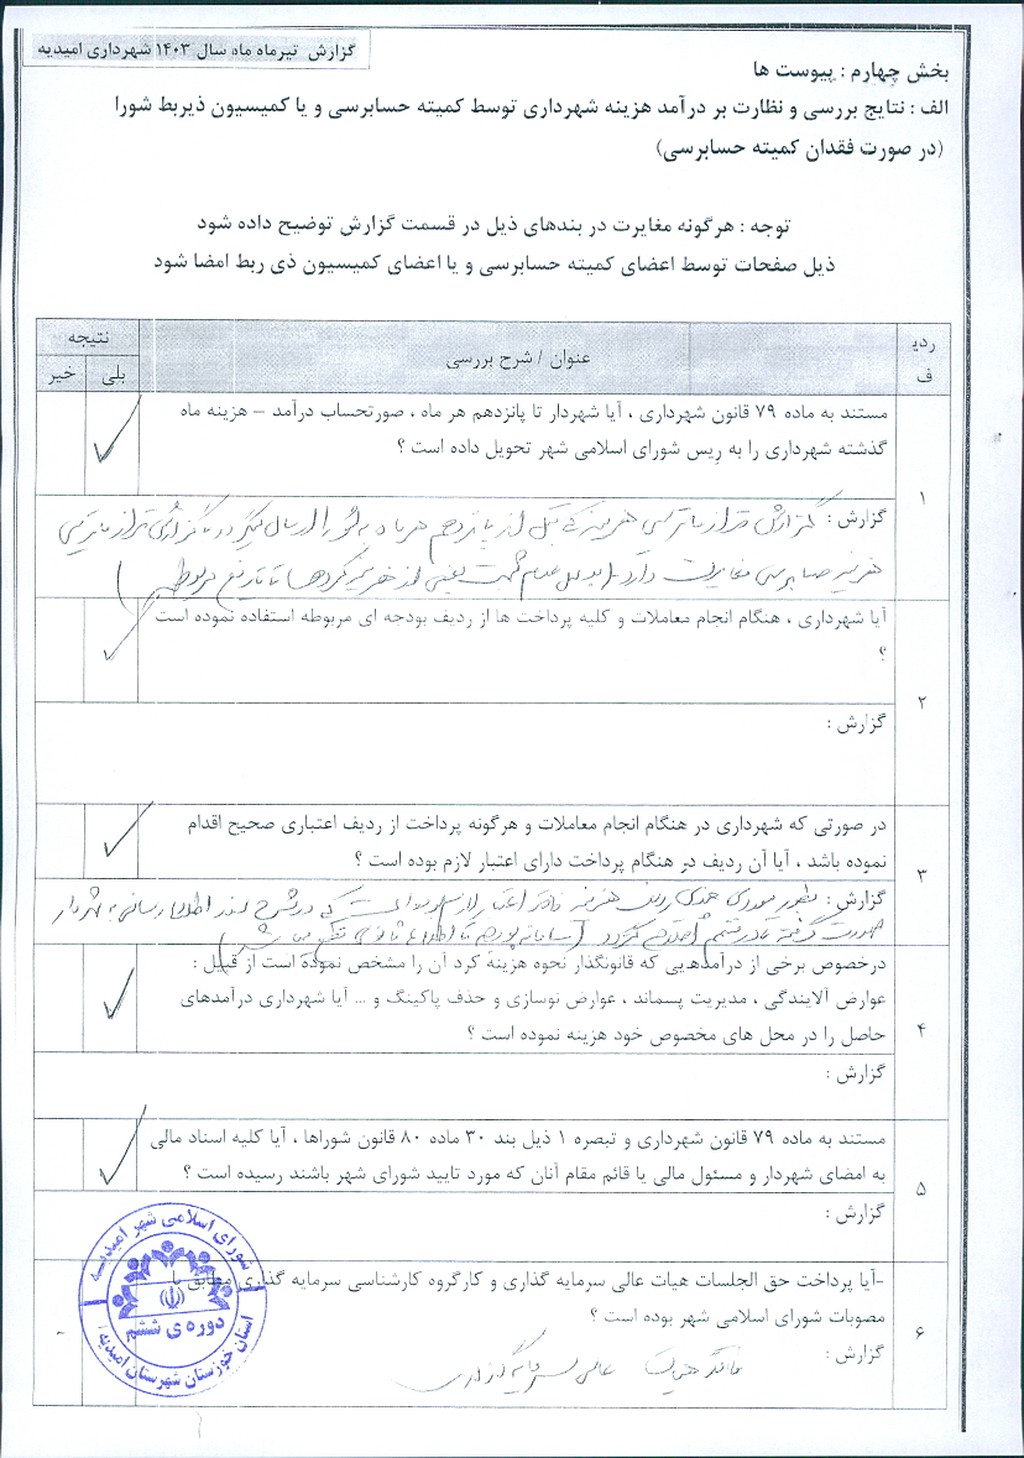 گزارش تیرماه ماه سال ۱۴۰۳ شهرداری امیدیه
بخش چهارم : پیوست ها
الف : نتایج بررسی و نظارت بر درآمد هزینه شهرداری توسط کمیته حسابرسی و یا کمیسیون ذیربط شورا
(در صورت فقدان کمیته حسابرسی)
توجه : هرگونه مغایرت در بندهای ذیل در قسمت گزارش توضیح داده شود
ذیل صفحات توسط اعضای کمیته حسابرسی و یا اعضای کمیسیون ذی ربط امضا شود
ردیف
عنوان / شرح بررسی
نتیجه
بلی
خیر
۱
مستند به ماده ۷۹ قانون شهرداری ، آیا شهردار تا پانزدهم هر ماه ، صورتحساب درآمد – هزینه ماه
گذشته شهرداری را به رِیس شورای اسلامی شهر تحویل داده است ؟
گزارش : گزارش تراز ماتریسی هزینه قبل از پانزدهم هر ماه به شورا ارسال میگردد تراز ماتریسی
هزینه مغایرت دارد (بدلیل عدم ثبت بعضی از هزینه کردها تا تاریخ مربوطه)
۲
آیا شهرداری ، هنگام انجام معاملات و کلیه پرداخت ها از ردیف بودجه ای مربوطه استفاده نموده است
؟
گزارش :
۳
در صورتی که شهرداری در هنگام انجام معاملات و هرگونه پرداخت از ردیف اعتباری صحیح اقدام
نموده باشد ، آیا آن ردیف در هنگام پرداخت دارای اعتبار لازم بوده است ؟
گزارش : بطور موردی چندی ردیف هزینه فاقد اعتبار لازم اطلاع رسانی به شهردار
صورت گرفته تا در متمم اصلاح گردد (سامانه بودجه تا اطلاع ثانوی)
۴
درخصوص برخی از درآمدهیی که قانونگذار نحوه هزینه کرد آن را مشخص نموده است از قبیل :
عوارض آلایندگی ، مدیریت پسماند ، عوارض نوسازی و حذف پاکینگ و ... آیا شهرداری درآمدهای
حاصل را در محل های مخصوص خود هزینه نموده است ؟
گزارش :
۵
مستند به ماده ۷۹ قانون شهرداری و تبصره ۱ ذیل بند ۳۰ ماده ۸۰ قانون شوراها ، آیا کلیه اسناد مالی
به امضای شهردار و مسئول مالی یا قائم مقام آنان که مورد تایید شورای شهر باشند رسیده است ؟
گزارش :
۶
-آیا پرداخت حق الجلسات هیات عالی سرمایه گذاری و کارگروه کارشناسی سرمایه گذاری مطابق با
مصوبات شورای اسلامی شهر بوده است ؟
گزارش : فاقد هیات عالی سرمایه گذاری
شورای اسلامی شهر امیدیه
دوره ی ششم
استان خوزستان شهرستان امیدیه